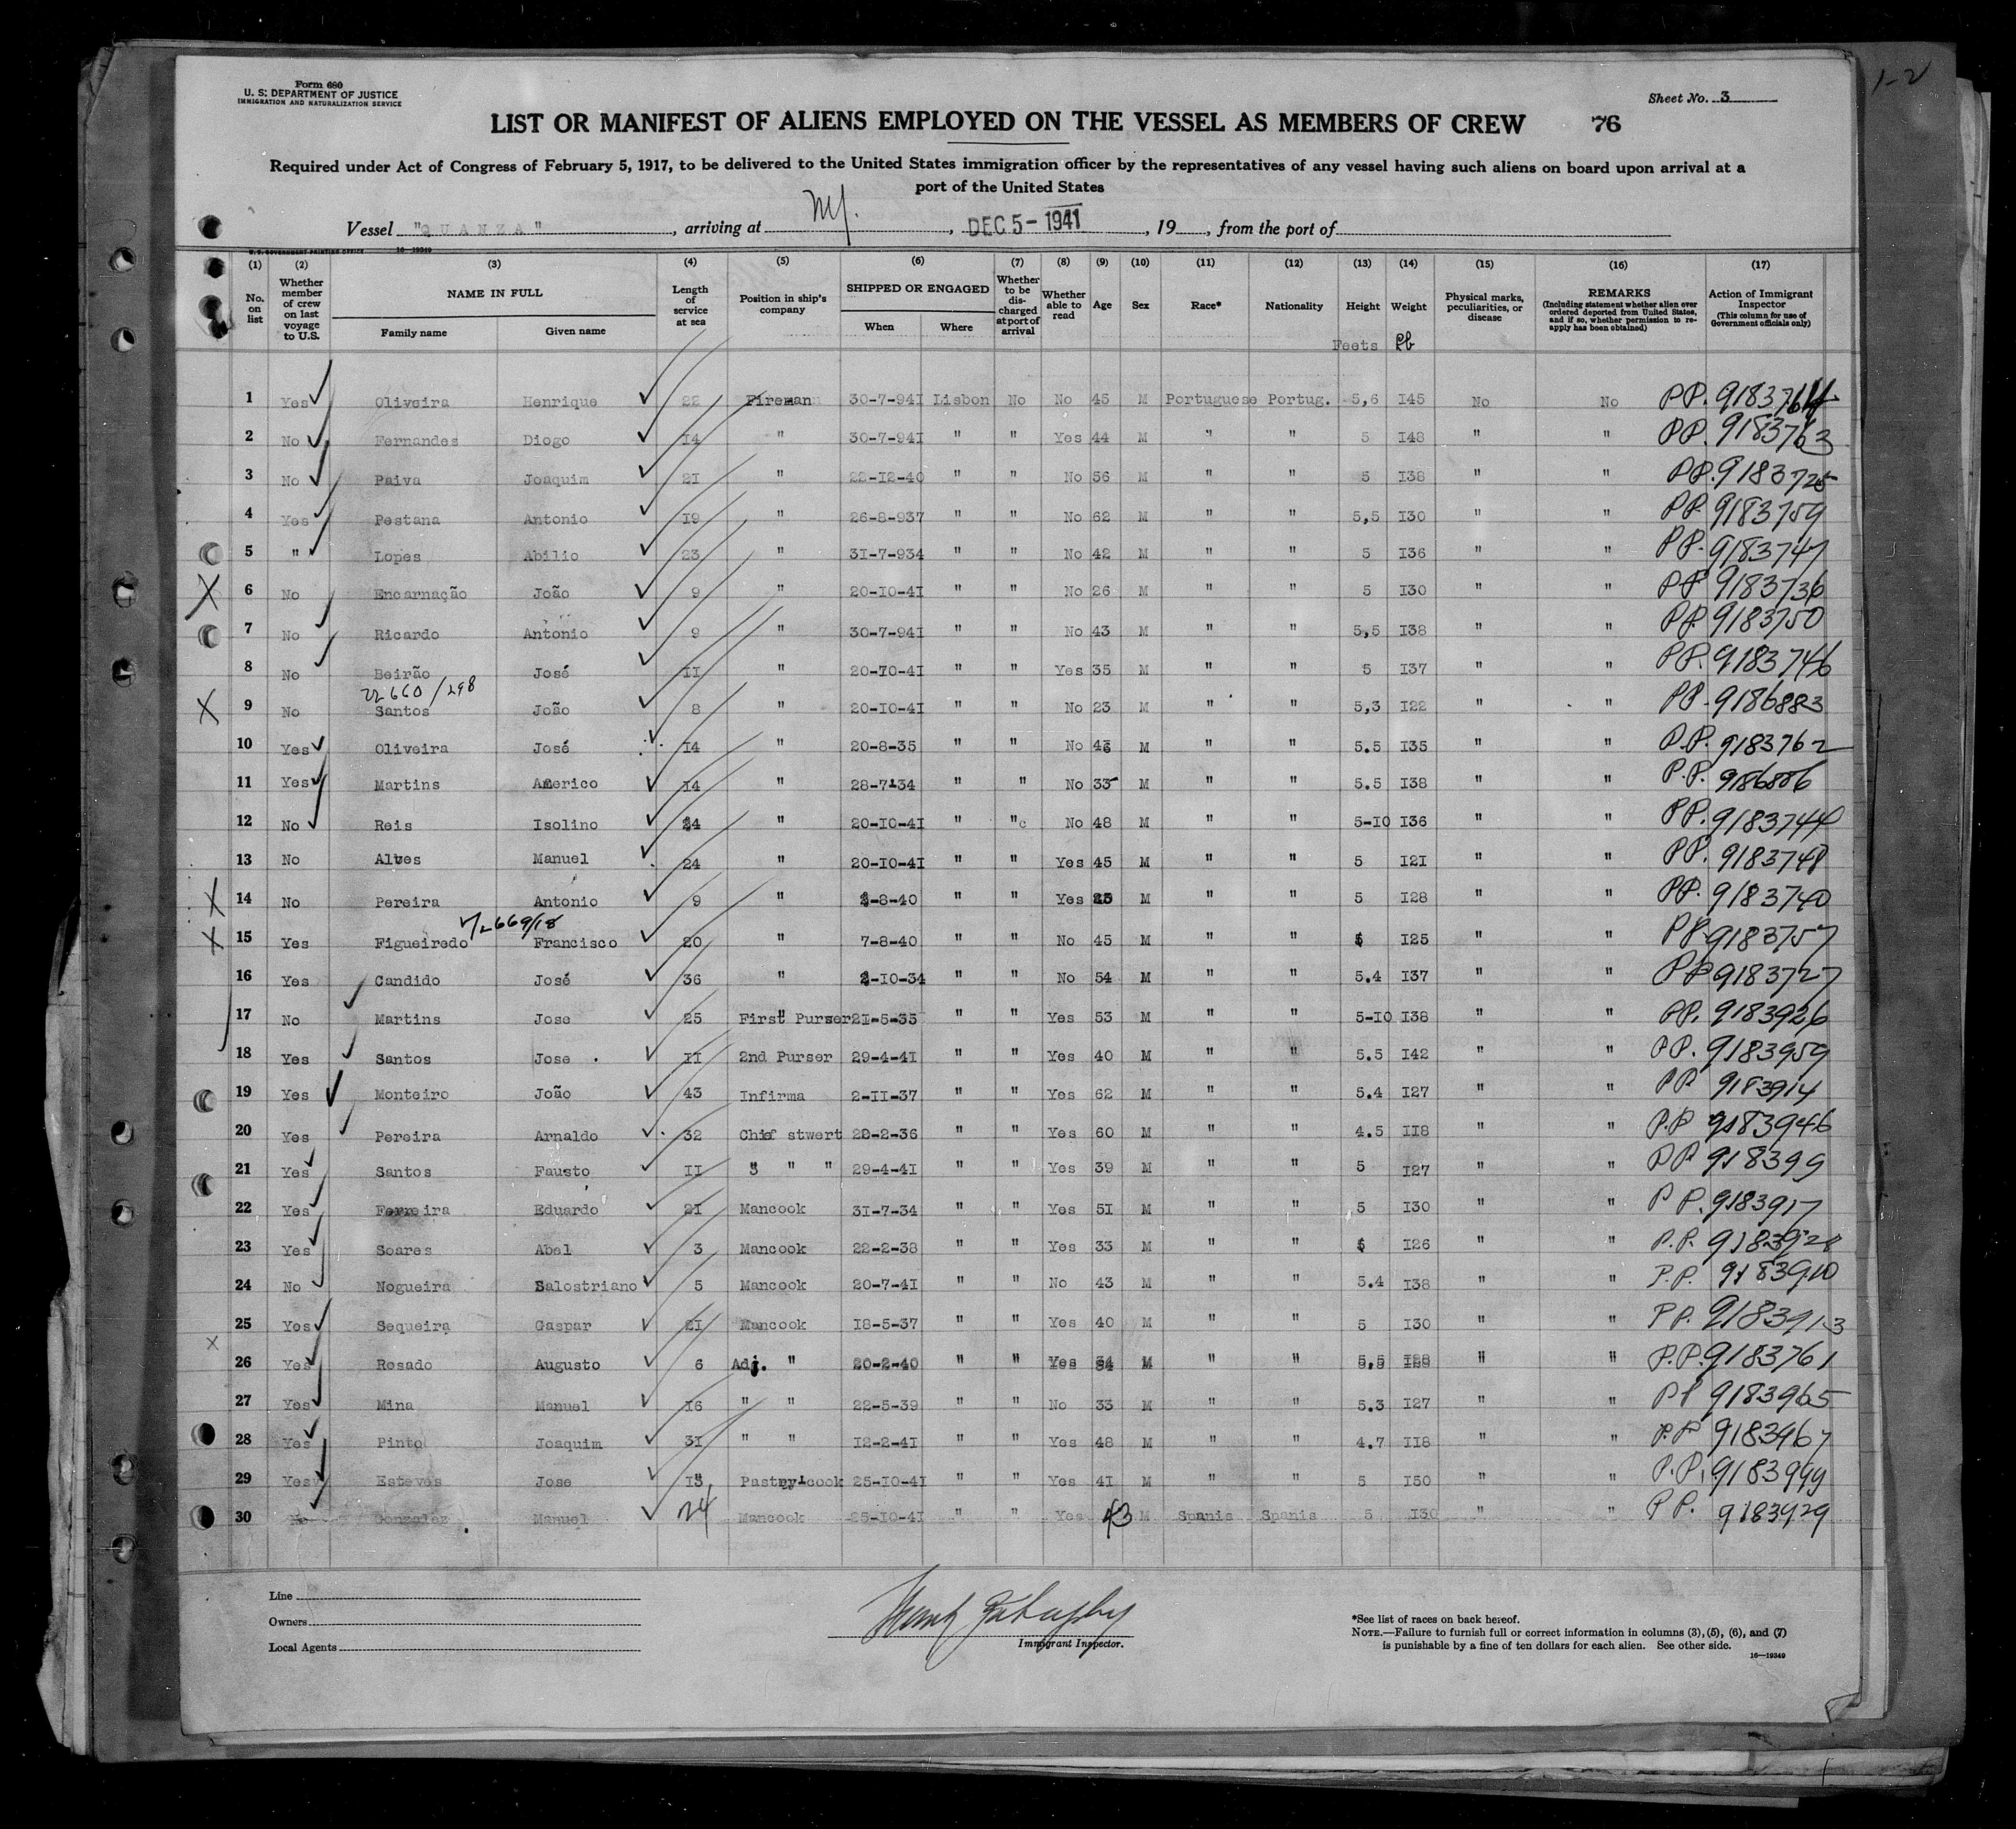 1-2
Form 680
U. S. DEPARTMENT OF JUSTICE
IMMIGRATION AND NATURALIZATION SERVICE
Sheet No. 3
LIST OR MANIFEST OF ALIENS EMPLOYED ON THE VESSEL AS MEMBERS OF CREW 76
Required under Act of Congress of February 5, 1917, to be delivered to the United States immigration officer by the representatives of any vessel having such aliens on board upon arrival at a
port of the United States
Vessel "QUANZA", arriving at NY., DEC 5-1941, 19, from the port of
U. S. GOVERNMENT PRINTING OFFICE 16—19349
(1) (2) (3) (4) (5) (6) (7) (8) (9) (10) (11) (12) (13) (14) (15) (16) (17)
No. on list
Whether member of crew on last voyage to U.S.
NAME IN FULL
Family name Given name
Length of service at sea
Position in ship's company
SHIPPED OR ENGAGED
When Where
Whether to be discharged at port of arrival
Whether able to read
Age
Sex
Race*
Nationality
Height
Weight
Physical marks, peculiarities, or disease
REMARKS
(Including statement whether alien ever ordered deported from United States, and if so, whether permission to re-apply has been obtained)
Action of Immigrant Inspector
(This column for use of Government officials only)
Feets lb
1 Yes Oliveira Henrique 22 Fireman 30-7-941 Lisbon No No 45 M Portuguese Portug. 5,6 145 No No PP. 9183764
2 No Fernandes Diogo 14 " 30-7-941 " " Yes 44 M " " 5 148 " " PP. 9183763
3 No Paiva Joaquim 21 " 22-12-40 " " No 56 M " " 5 138 " " PP. 9183725
4 Yes Pestana Antonio 19 " 26-8-937 " " No 62 M " " 5,5 130 " " PP. 9183759
5 " Lopes Abilio 23 " 31-7-934 " " No 42 M " " 5 136 " " PP. 9183747
6 No Encarnação João 9 " 20-10-41 " " No 26 M " " 5 130 " " PP 9183736
7 No Ricardo Antonio 9 " 30-7-941 " " No 43 M " " 5,5 138 " " PP. 9183750
8 No Beirão José 11 " 20-70-41 " " Yes 35 M " " 5 137 " " PP. 9183746
22660/298
9 No Santos João 8 " 20-10-41 " " No 23 M " " 5,3 122 " " PP. 9186883
10 Yes Oliveira José 14 " 20-8-35 " " No 43 M " " 5.5 135 " " P.P. 9183762
11 Yes Martins Americo 14 " 28-7-34 " " No 35 M " " 5.5 138 " " P.P. 9186806
12 No Reis Isolino 24 " 20-10-41 " " No 48 M " " 5-10 136 " " PP. 9183744
13 No Alves Manuel 24 " 20-10-41 " " Yes 45 M " " 5 121 " " PP. 9183748
14 No Pereira Antonio 9 " 2-8-40 " " Yes M " " 5 128 " " PP. 9183740
15 Yes Figueiredo Francisco 20 " 7-8-40 " " No 45 M " " 5 125 " " PP. 9183757
16 Yes Candido José 36 " 2-10-34 " " No 54 M " " 5.4 137 " " PP 9183727
17 No Martins Jose 25 First Purser 21-5-35 " " Yes 53 M " " 5-10 138 " " PP. 9183926
18 Yes Santos Jose 11 2nd Purser 29-4-41 " " Yes 40 M " " 5.5 142 " " PP. 9183959
19 Yes Monteiro João 43 Infirma 2-11-37 " " Yes 62 M " " 5.4 127 " " PP 9183914
20 Yes Pereira Arnaldo 32 Chief stwert 20-2-36 " " Yes 60 M " " 4.5 118 " " P.P 9183946
21 Yes Santos Fausto 11 3 " " 29-4-41 " " Yes 39 M " " 5 127 " " PP 918399
22 Yes Ferreira Eduardo 21 Mancook 31-7-34 " " Yes 51 M " " 5 130 " " P P. 9183917
23 Yes Soares Abel 3 Mancook 22-2-38 " " Yes 33 M " " 5 126 " " P.P. 9183928
24 No Nogueira Salostriano 5 Mancook 20-7-41 " " No 43 M " " 5.4 138 " " P.P. 9183910
25 Yes Sequeira Gaspar 21 Mancook 18-5-37 " " Yes 40 M " " 5 130 " " PP. 9183913
26 Yes Rosado Augusto 6 Adj. " 20-2-40 " " Yes 34 M " " 5,5 128 " " P.P. 9183761
27 Yes Mina Manuel 16 " " 22-5-39 " " No 33 M " " 5.3 127 " " PP 9183965
28 Yes Pinto Joaquim 31 " " 12-2-41 " " Yes 48 M " " 4.7 118 " " P.P 9183967
29 Yes Esteves Jose 15 Pastry-cook 25-10-41 " " Yes 41 M " " 5 150 " " P.P. 9183999
30 No Gonzalez Manuel 24 Mancook 25-10-41 " " Yes 43 M Spanis Spanis 5 130 " " PP. 9183929
Line
Owners
Local Agents
Immigrant Inspector.
*See list of races on back hereof.
NOTE.—Failure to furnish full or correct information in columns (3), (5), (6), and (7)
is punishable by a fine of ten dollars for each alien. See other side.
16—19349